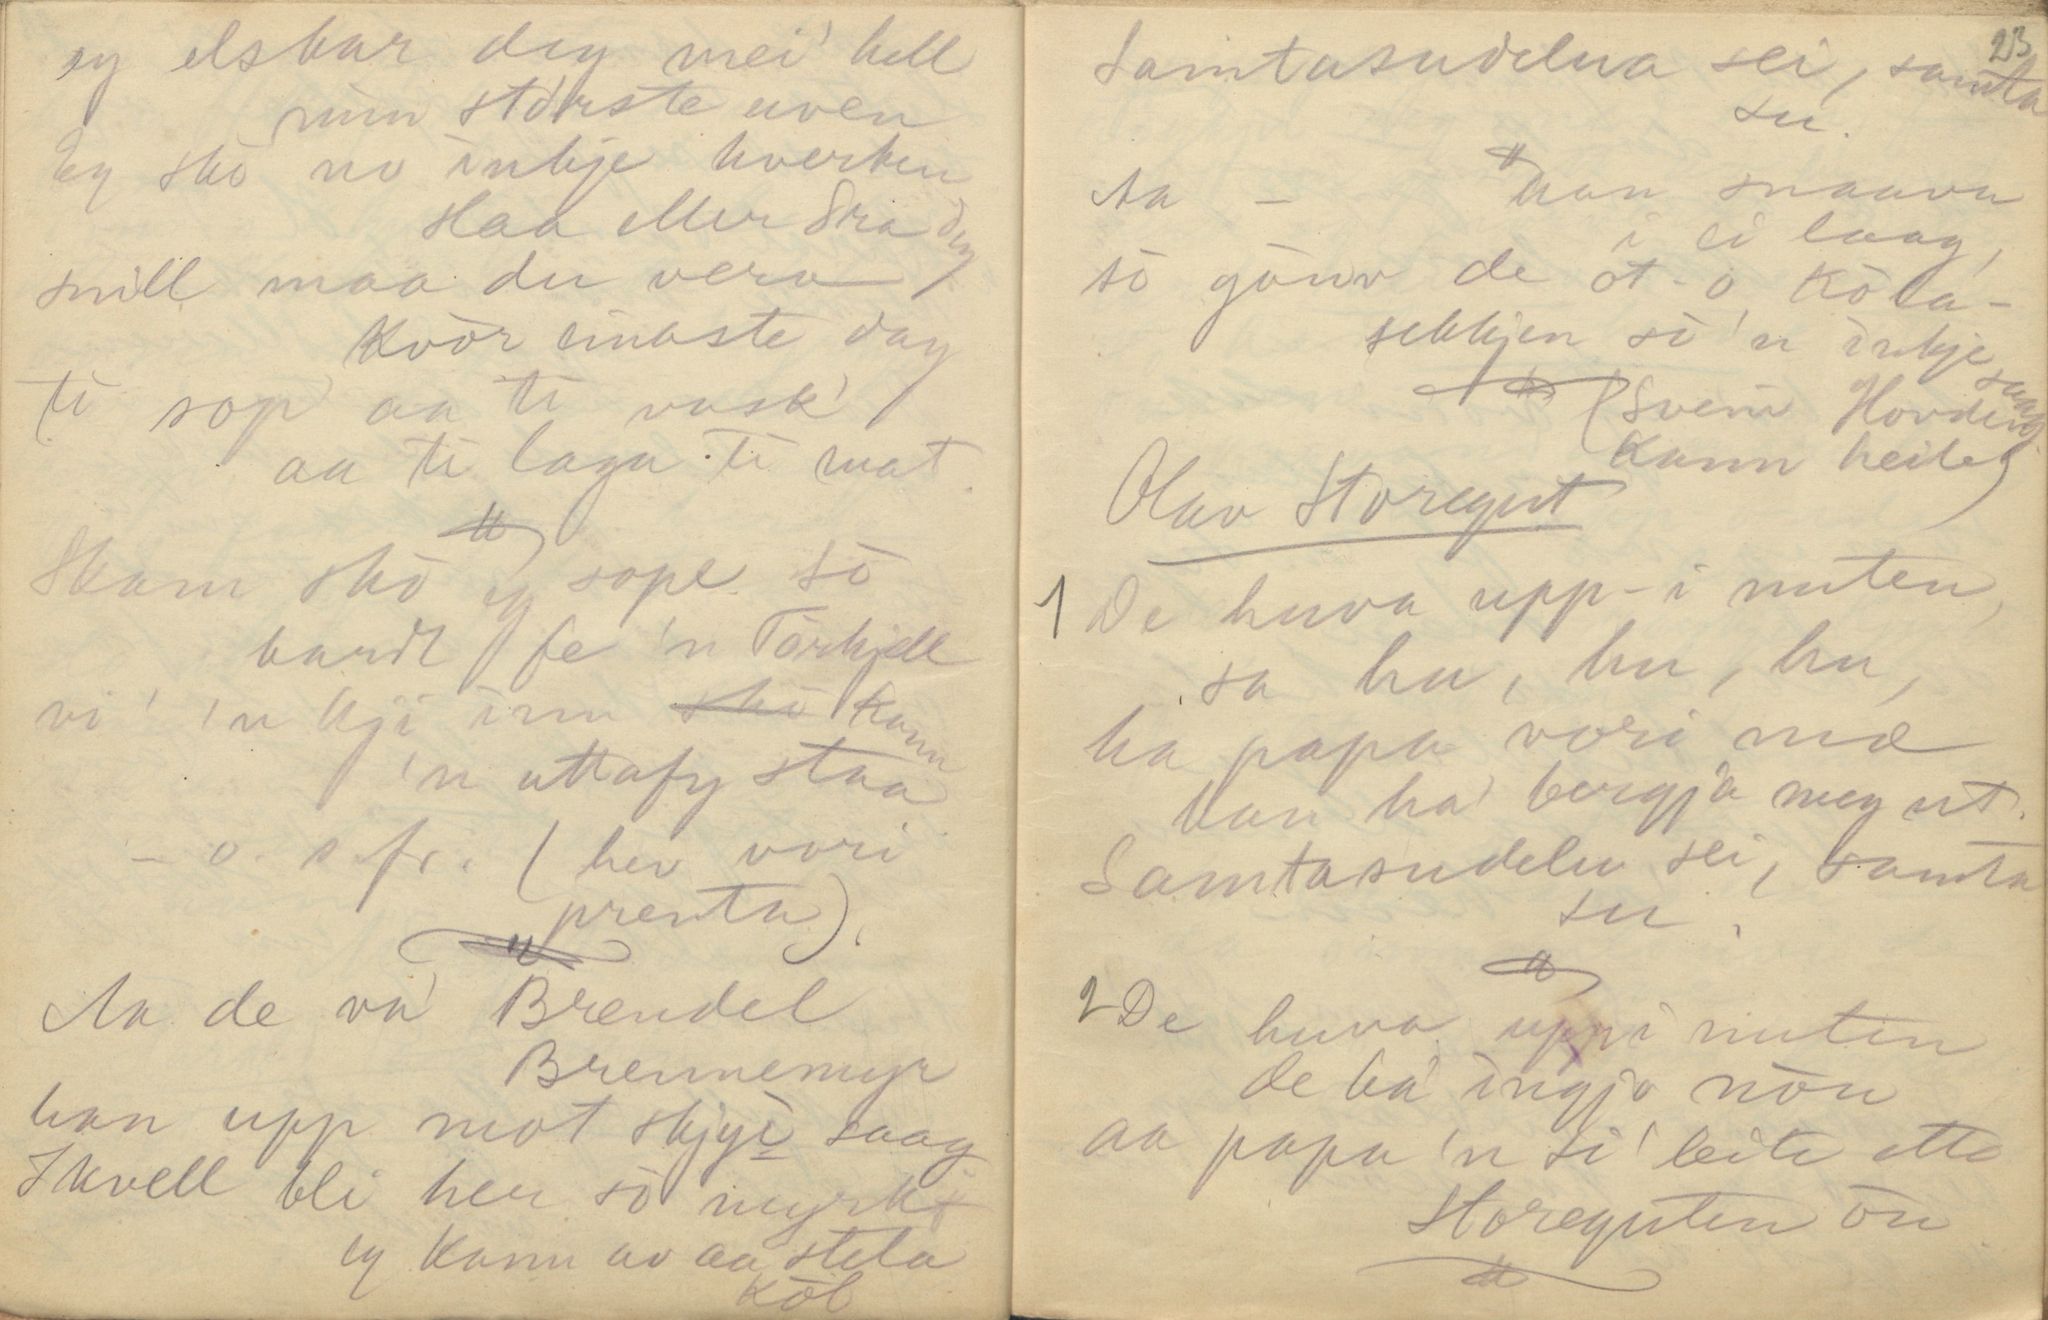 eg elskar deg mei' hell
min störste uven
Eg skò no inkje hverken
slaa eller Dra deg
snill maa du vera
kvòr einaste dag
ti sop' aa ti vask'
aa ti laga ti mat.
"
Skam skò eg sope sò
hardt fe 'n Tòrkjell
vi' 'n kji inn skò kann
'n uttafy staa
- o. s. fr. (hev vori
prenta).
"
Aa de va' Brendel
Brennemyr
han upp mot skjyi saag
I kvell bli her sò myrkt
eg kann av aa stela
Kòl
23
Samtasudelua sei, samta
su.
"
Aa - han snaava
i ei laag,
sò gònv de ot-o kòla-
sekkjen sò 'n inkje saag
"
(Svein Hovden
kann heile)
Olav Storegut
1 De huva upp-i nuten,
sa hu, hu, hu,
ha papa vori me
han ha' bergja meg ut.
Samtasudelu sei, samta
su.
"
2 De huva uppi nuten
de ha' ingjo nòn
aa papa 'n ti' leite ette
Storeguten òn
"